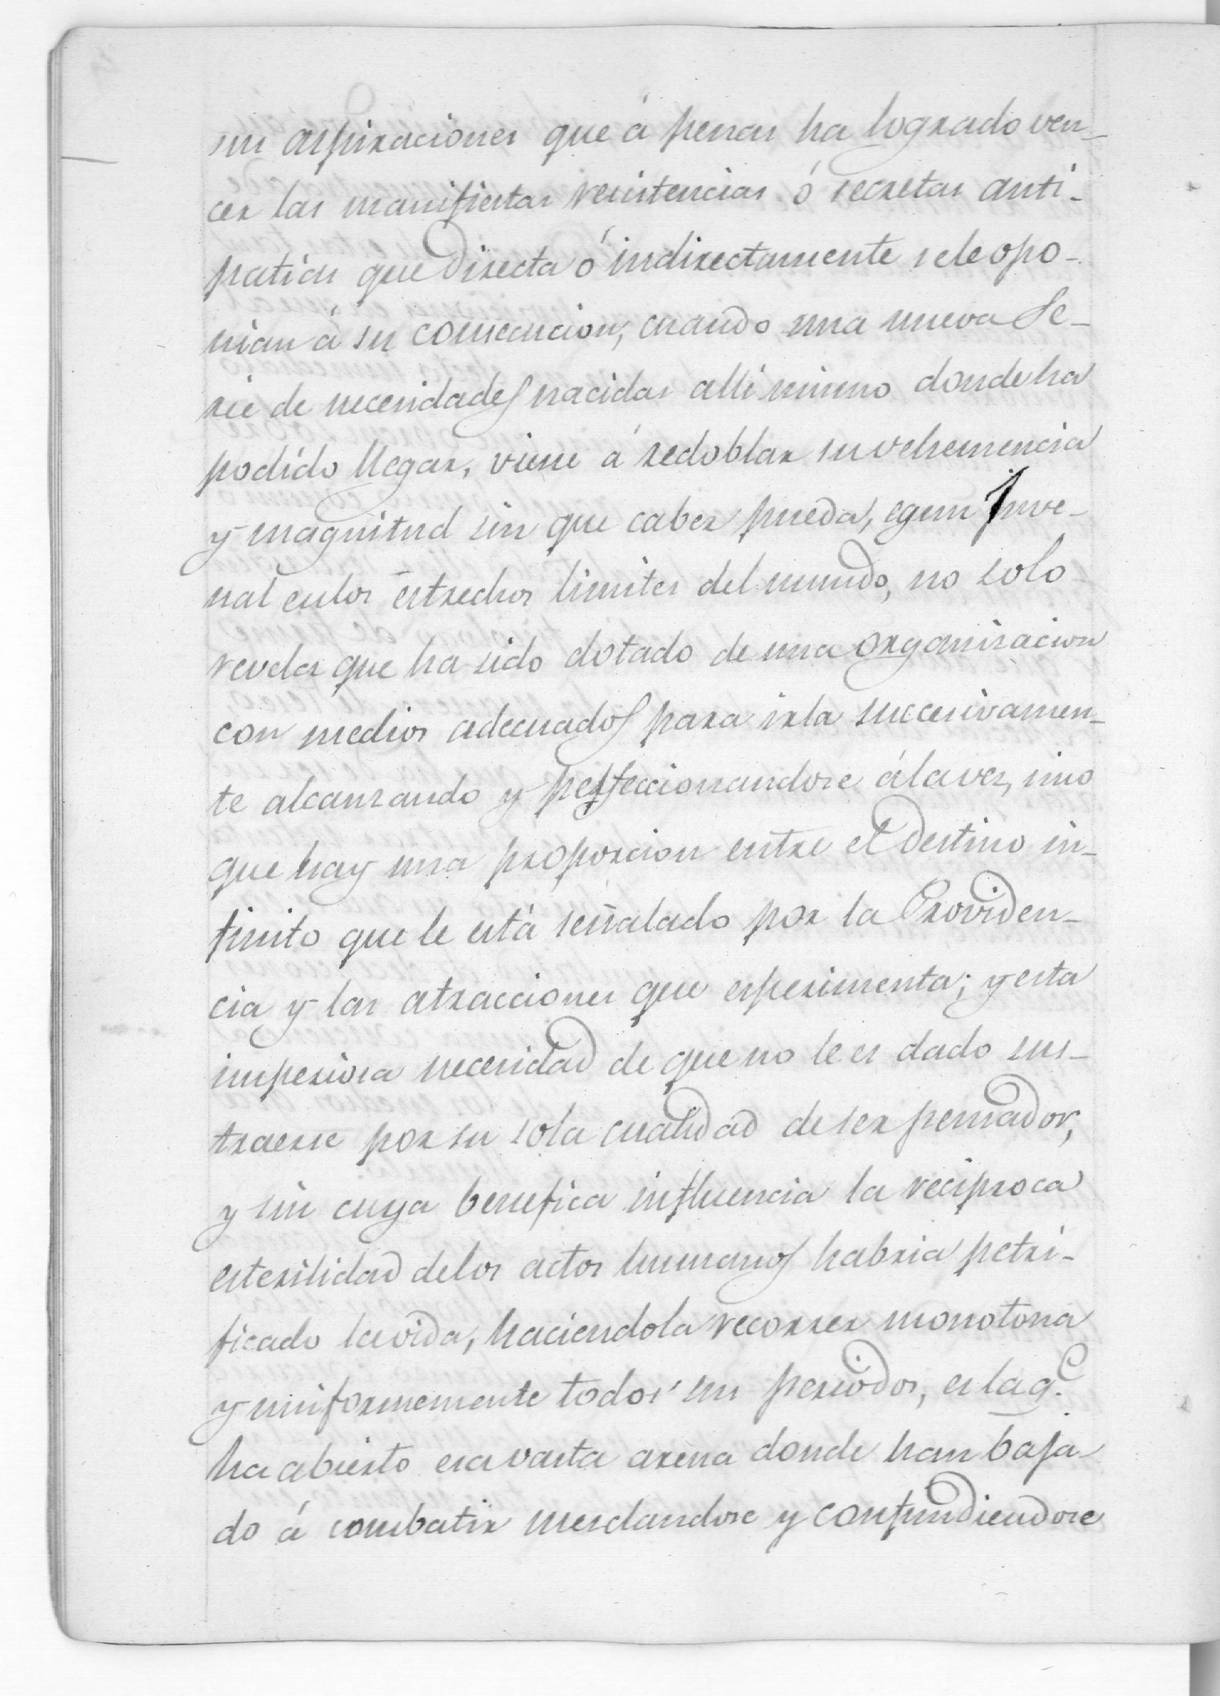 sus aspiraciones que á penas ha logrado ven-
cer las manifiestas resistencias ó secretas anti-
patias que directa ó indirectamente se le opo-
nian á su consecucion, cuando una nueva se-
rie de necesidades nacidas alli mismo donde ha
podido llegar, viene á redoblar su vehemencia
y magnitud sin que caber pueda, segun Juve-
nal en los estrechos limites del mundo, no solo
revela que ha sido dotado de una organisacion
con medios adecuados para irla succesivamen-
te alcansando y perfeccionandose á la ves, sino
que hay una proporcion entre el destino in-
finito que le está señalado por la Providen-
cia y las atracciones que esperimenta; y esta
imperiosa necesidad de que no le es dado sus-
traerse por su sola cualidad de ser pensador,
y sin cuya benefica influencia la reciproca
esterilidad de los actos humanos habria petri-
ficado la vida, haciendola recorrer monotona
y uniformemente todos sus periodos, es la q.e
ha abierto esa vasta arena donde han baja-
do á combatir mesclandose y confundiendose